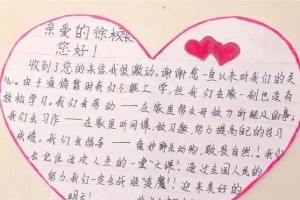 亲爱的徐校长
您好！
收到了您的来信，我很激动。谢谢您一直以来对我们的关
心。由于疫情暂时我们不能上学，但我们在家一刻也没有
放松学习。我们去劳动——在家里帮父母做力所能及的事；
我们去习作——在家里听网课，做习题，努力提高自己的
成绩。我们去倡导——爱护野生动物，敬畏自然！我们
会记住这次人生的一堂"大课"。通过全国人民的
努力，我们一定会战胜病魔！迎来美好的
明天！